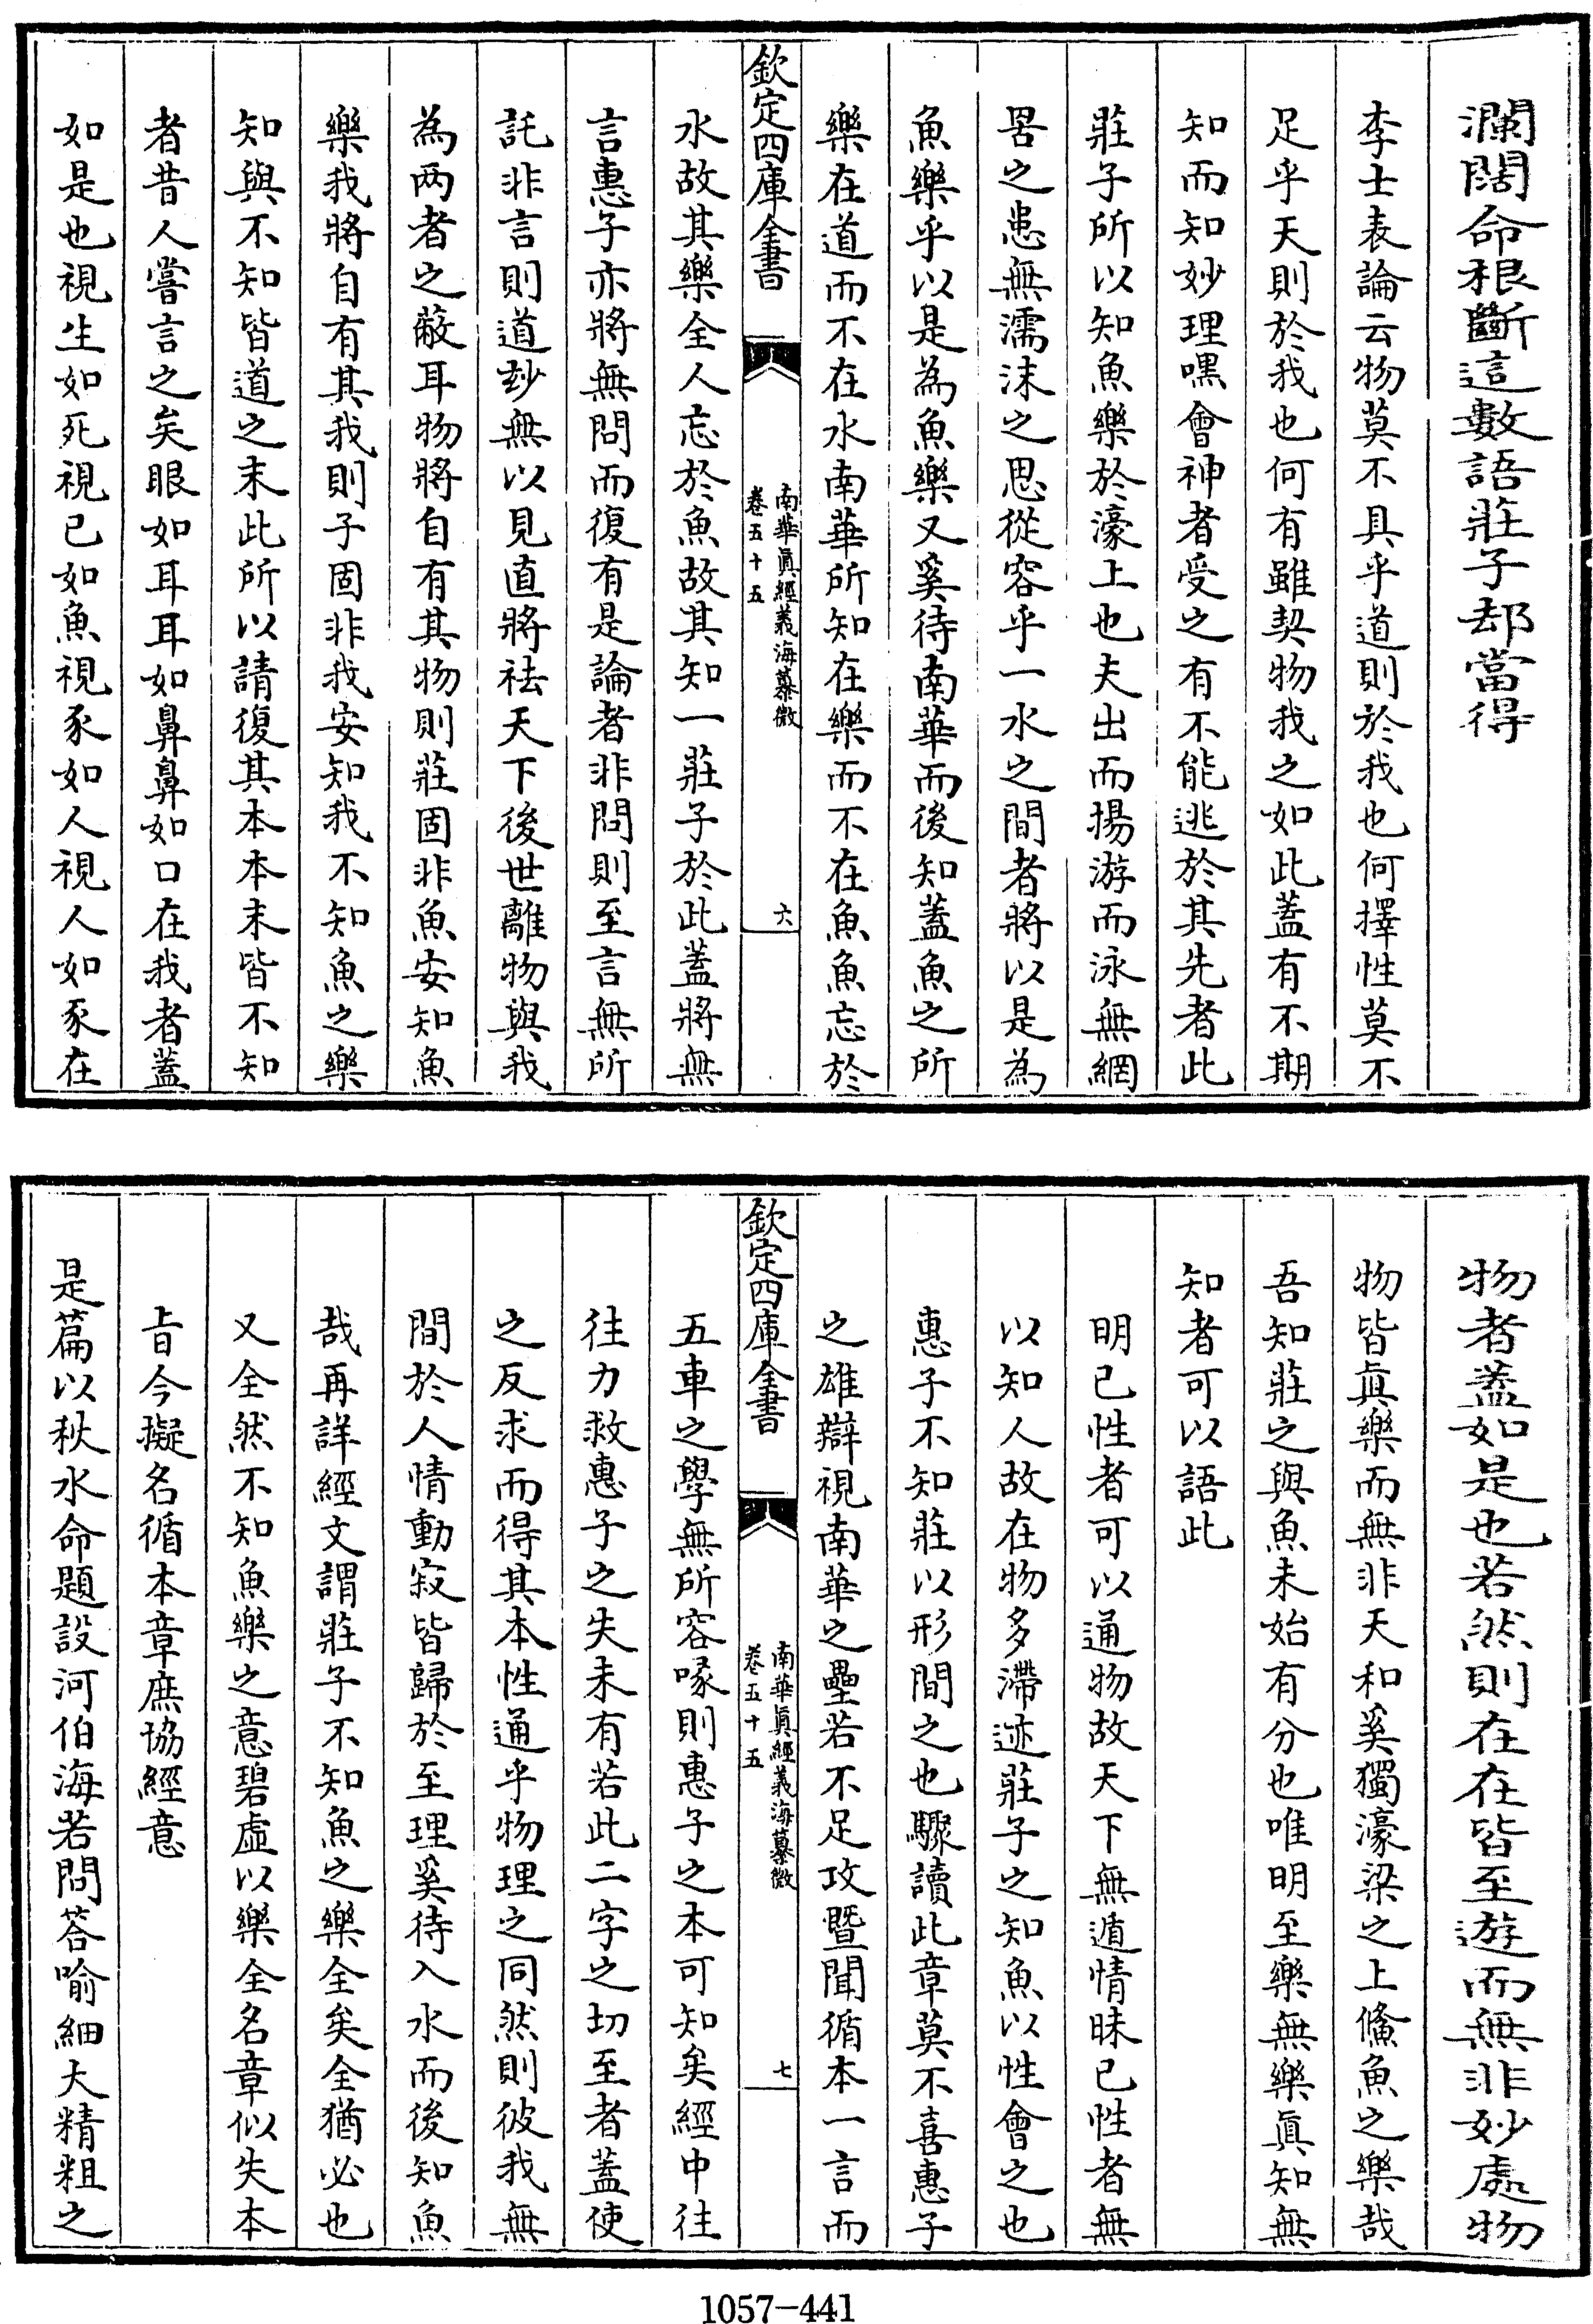 瀾闊命根斷這數語莊子却當得
李士表論云物莫不具乎道則於我也何擇性莫不
足乎天則於我也何有雖契物我之如此蓋有不期
知而知妙理嘿會神者受之有不能逃於其先者此
莊子所以知魚樂於濠上也夫出而揚游而泳無網
罟之患無濡沫之思從容乎一水之間者將以是為
魚樂乎以是為魚樂又奚待南華而後知蓋魚之所
樂在道而不在水南華所知在樂而不在魚魚忘於
欽定四庫全書
南華眞經義海纂微
卷五十五
六
水故其樂全人忘於魚故其知一莊子於此蓋將無
言惠子亦將無問而復有是論者非問則至言無所
託非言則道妙無以見直將袪天下後世離物與我
為两者之蔽耳物將自有其物則莊固非魚安知魚
樂我將自有其我則子固非我安知我不知魚之樂
知與不知皆道之末此所以請復其本本末皆不知
者昔人嘗言之矣眼如耳耳如鼻鼻如口在我者蓋
如是也視生如死視已如魚視豕如人視人如豕在
物者蓋如是也若然則在在皆至遊而無非妙處物
物皆眞樂而無非天和奚獨濠梁之上鯈魚之樂哉
吾知莊之與魚未始有分也唯明至樂無樂眞知無
知者可以語此
明已性者可以通物故天下無遁情昧已性者無
以知人故在物多滯迹莊子之知魚以性會之也
惠子不知莊以形間之也驟讀此章莫不喜惠子
之雄辯視南華之壘若不足攻暨聞循本一言而
欽定四庫全書
南華眞經義海纂微
卷五十五
七
五車之學無所容喙則惠子之本可知矣經中往
往力救惠子之失未有若此二字之切至者蓋使
之反求而得其本性通乎物理之同然則彼我無
間於人情動寂皆歸於至理奚待入水而後知魚
哉再詳經文謂莊子不知魚之樂全矣全猶必也
又全然不知魚樂之意碧虛以樂全名章似失本
旨今擬名循本章庶協經意
是篇以秋水命題設河伯海若問答喻細大精粗之
1057-441